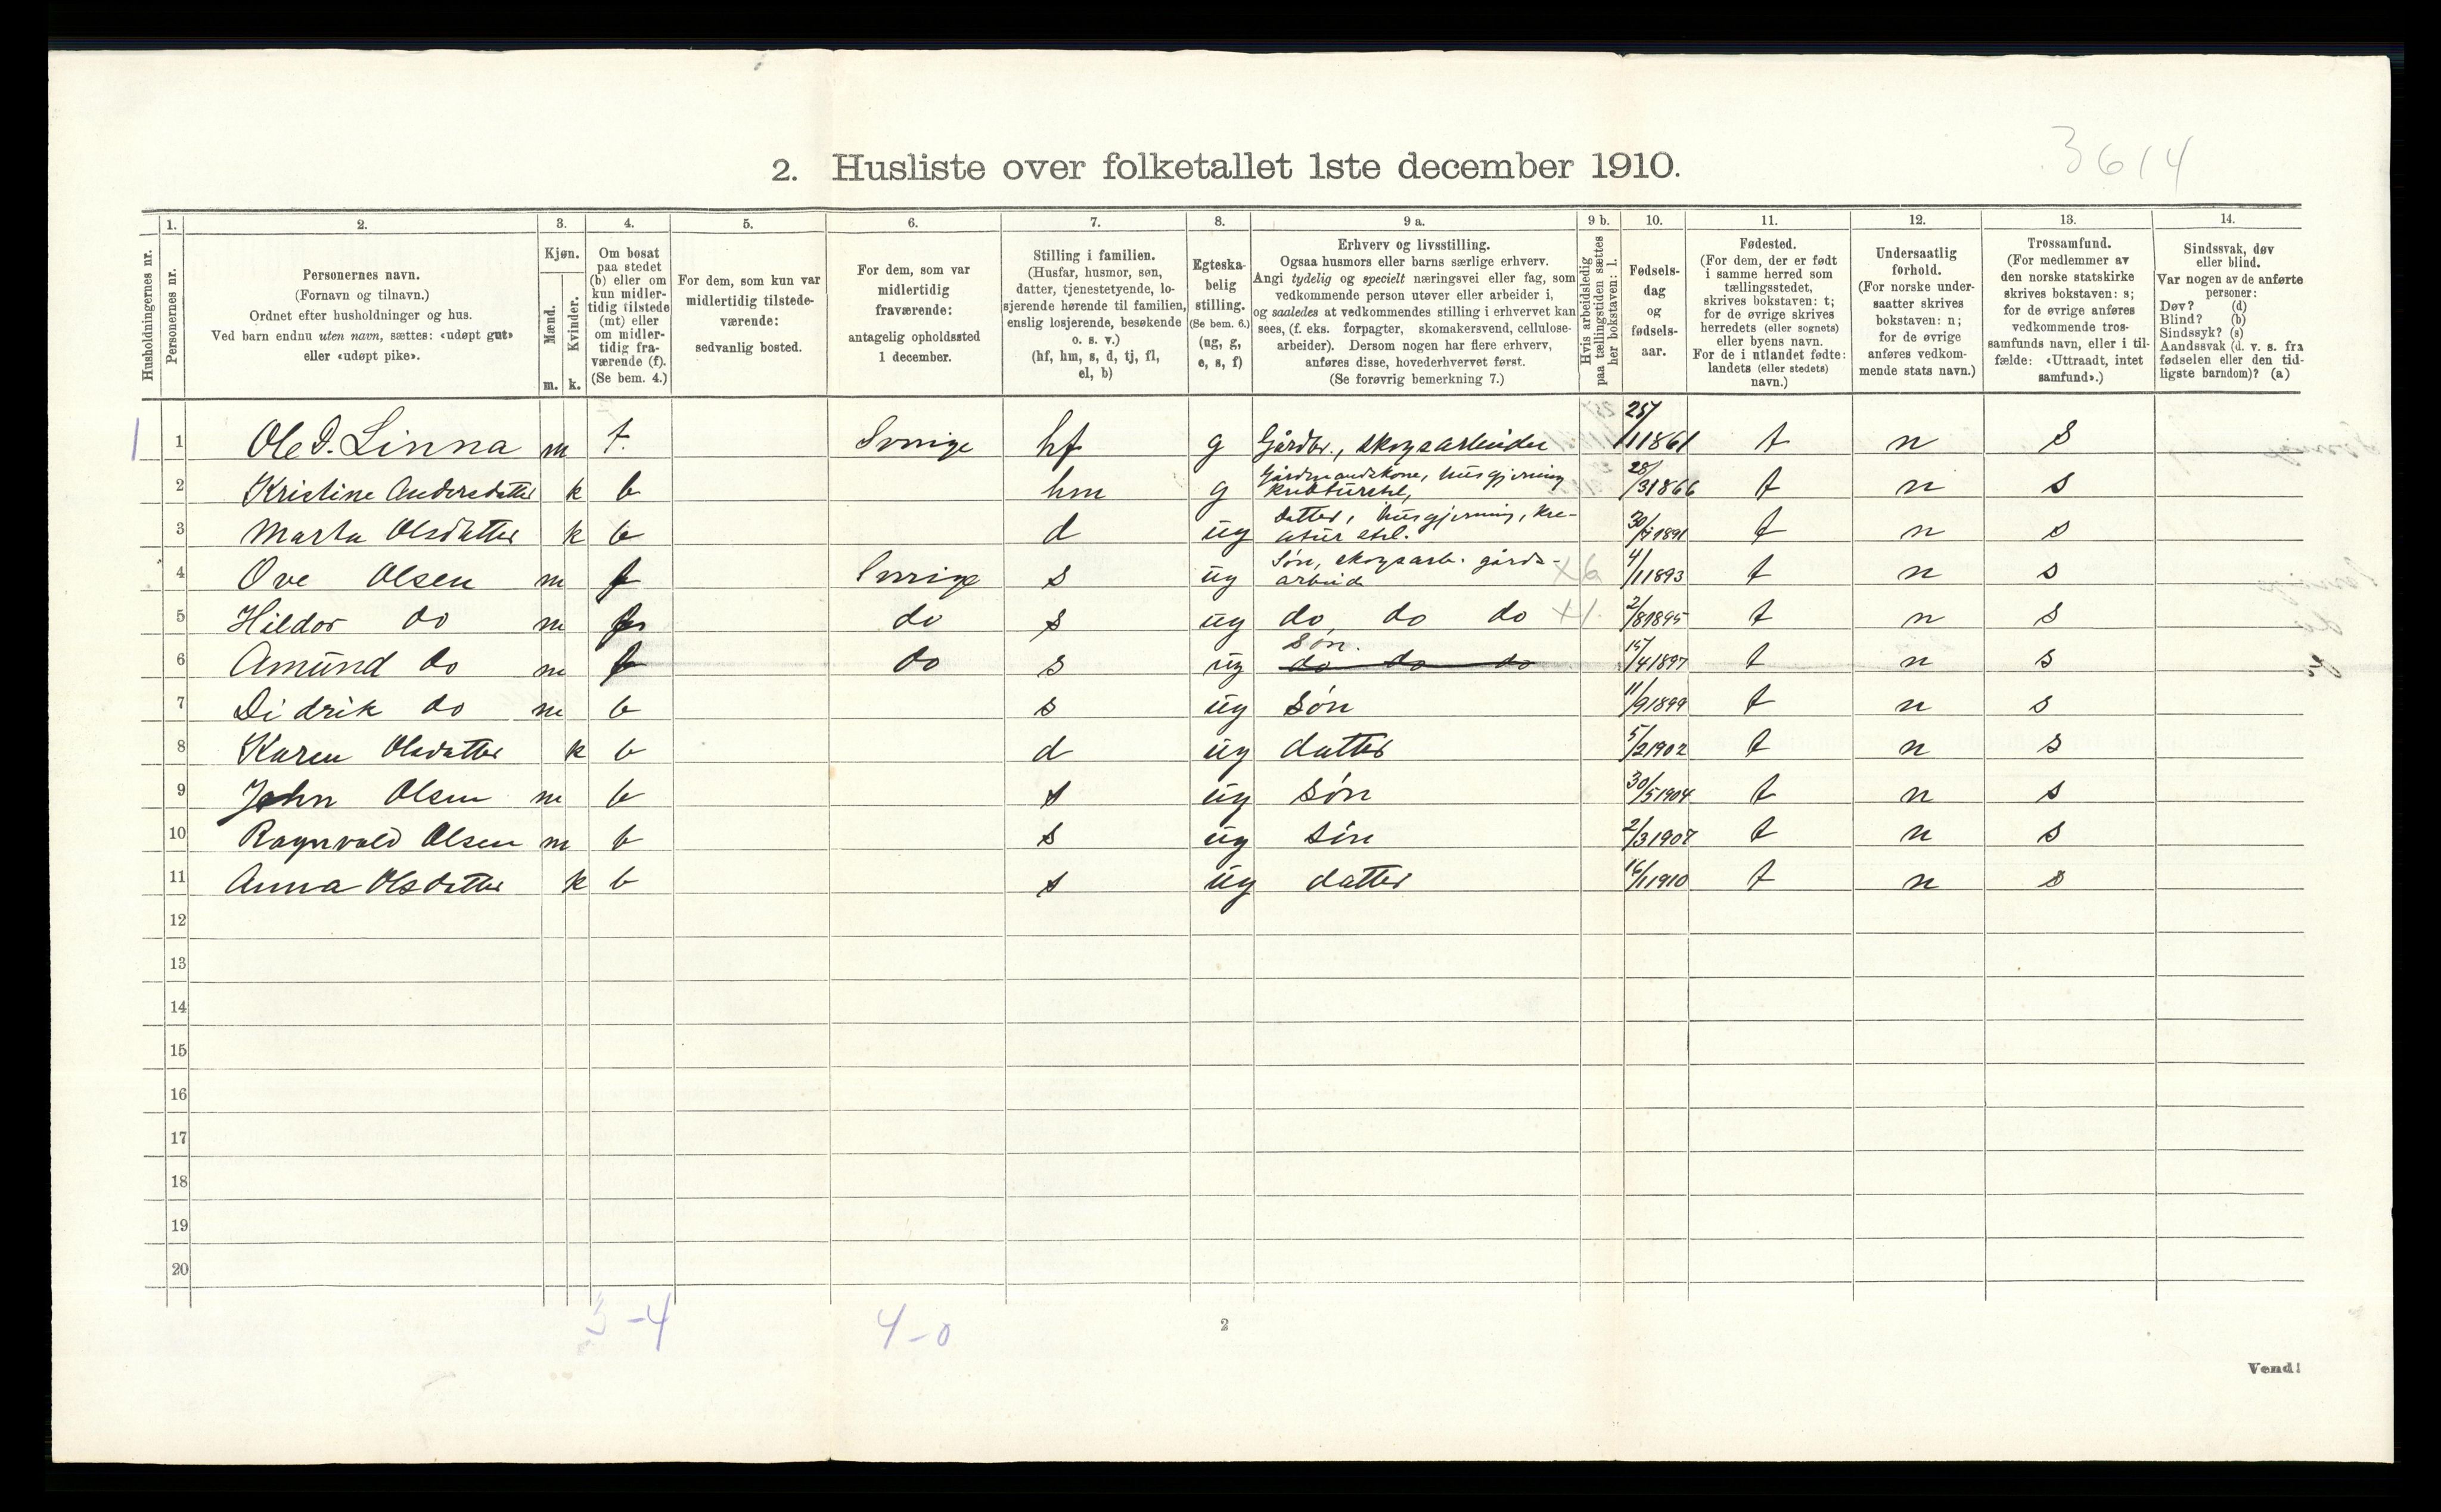 3614
2. Husliste over folketallet 1ste december 1910.
Husholdningernes nr.
1.
Personernes nr.
2.
Personernes navn.
(Fornavn og tilnavn.)
Ordnet efter husholdninger og hus.
Ved barn endnu uten navn, sættes: «udøpt gut»
eller «udøpt pike».
3.
Kjøn.
Mænd.
Kvinder.
m. k.
4.
Om bosat
paa stedet
(b) eller om
kun midler-
tidig tilstede
(mt) eller
om midler-
tidig fra-
værende (f).
(Se bem. 4.)
5.
For dem, som kun var
midlertidig tilstede-
værende:
sedvanlig bosted.
6.
For dem, som var
midlertidig
fraværende:
antagelig opholdssted
1 december.
7.
Stilling i familien.
(Husfar, husmor, søn,
datter, tjenestetyende, lo-
sjerende hørende til familien,
enslig losjerende, besøkende
o. s. v.)
(hf, hm, s, d, tj, fl,
el, b)
8.
Egteska-
belig
stilling.
(Se bem. 6.)
(ug, g,
e, s, f)
9 a.
Erhverv og livsstilling.
Ogsaa husmors eller barns særlige erhverv.
Angi tydelig og specielt næringsvei eller fag, som
vedkommende person utøver eller arbeider i,
og saaledes at vedkommendes stilling i erhvervet kan
sees, (f. eks. forpagter, skomakersvend, cellulose-
arbeider). Dersom nogen har flere erhverv,
anføres disse, hovederhvervet først.
(Se forøvrig bemerkning 7.)
9 b.
Hvis arbeidsledig
paa tællingstiden sættes
her bokstaven: l.
10.
Fødsels-
dag
og
fødsels-
aar.
11.
Fødested.
(For dem, der er født
i samme herred som
tællingsstedet,
skrives bokstaven: t;
for de øvrige skrives
herredets (eller sognets)
eller byens navn.
For de i utlandet fødte:
landets (eller stedets)
navn.)
12.
Undersaatlig
forhold.
(For norske under-
saatter skrives
bokstaven: n;
for de øvrige
anføres vedkom-
mende stats navn.)
13.
Trossamfund.
(For medlemmer av
den norske statskirke
skrives bokstaven: s;
for de øvrige anføres
vedkommende tros-
samfunds navn, eller i til-
fælde: «Uttraadt, intet
samfund».)
14.
Sindssvak, døv
eller blind.
Var nogen av de anførte
personer:
Døv? (d)
Blind? (b)
Sindssyk? (s)
Aandssvak (d. v. s. fra
fødselen eller den tid-
ligste barndom)? (a)
1 1 Ole D. Linna m f. Sverige hf g Gårdbr., skogsarbeider 25/1 1861 t n s
2 Kristine Andersdatter k b hm g Gårdmandskone, husgjerning kreaturstel, 28/3 1866 t n s
3 Marta Olsdatter k b d ug Datter, husgjerning, kre-
atur stel. 30/ 1891 t n s
4 Ove Olsen m f Sverige s ug Søn, skogsarb. gårds-
arbeid 4/1 1893 t n s
5 Hildor do m f do s ug do do do 2/8 1895 t n s
6 Amund do m f do s ug Søn. do do do 15/4 1897 t n s
7 Didrik do m b s ug søn 11/9 1899 t n s
8 Karen Olsdatter k b d ug datter 5/2 1902 t n s
9 John Olsen m b s ug søn 30/5 1904 t n s
10 Ragnvald Olsen m b s ug søn 2/3 1907 t n s
11 Anna Olsdatter k b s ug datter 16/1 1910 t n s
12
13
14
15
16
17
18
19
20
3-4 4-0
2
Vend!